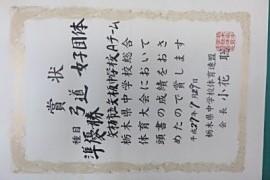 賞状
種目 弓道 女子団体
準優勝
矢板市立矢板中学校Aチーム
栃木県中学校総合
体育大会において
頭書の成績をおさ
めたので賞します
平成27年7月29日
栃木県中学校体育連盟
会長 花